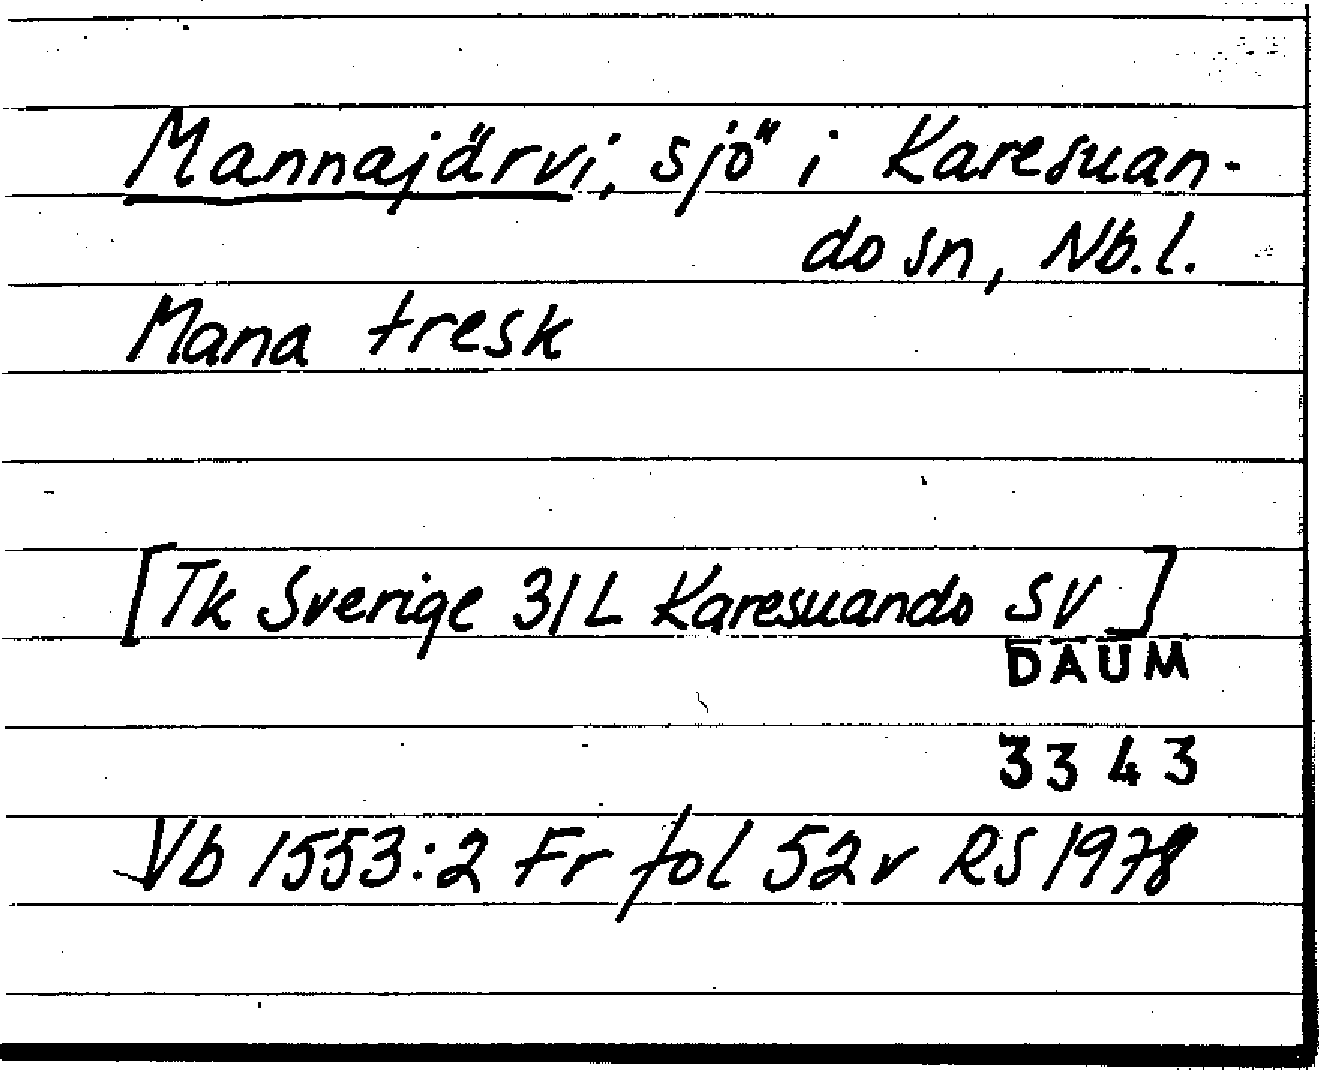 Mannajärvi, sjö i Karesuan-
do sn, Nb.l.
Mana tresk
[Tk Sverige 31L Karesuando SV]
DAUM
3343
Vb 1553:2 Fr fol 52v RS 1978